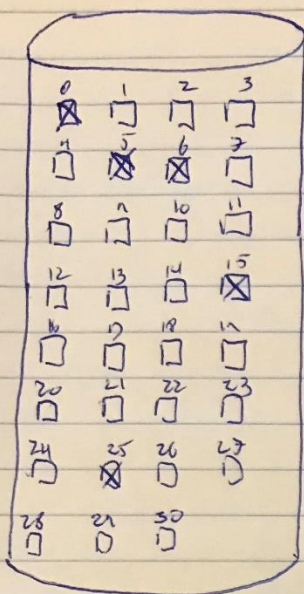 0 1 2 3
4 5 6 7
8 9 10 11
12 13 14 15
16 17 18 19
20 21 22 23
24 25 26 27
28 29 30